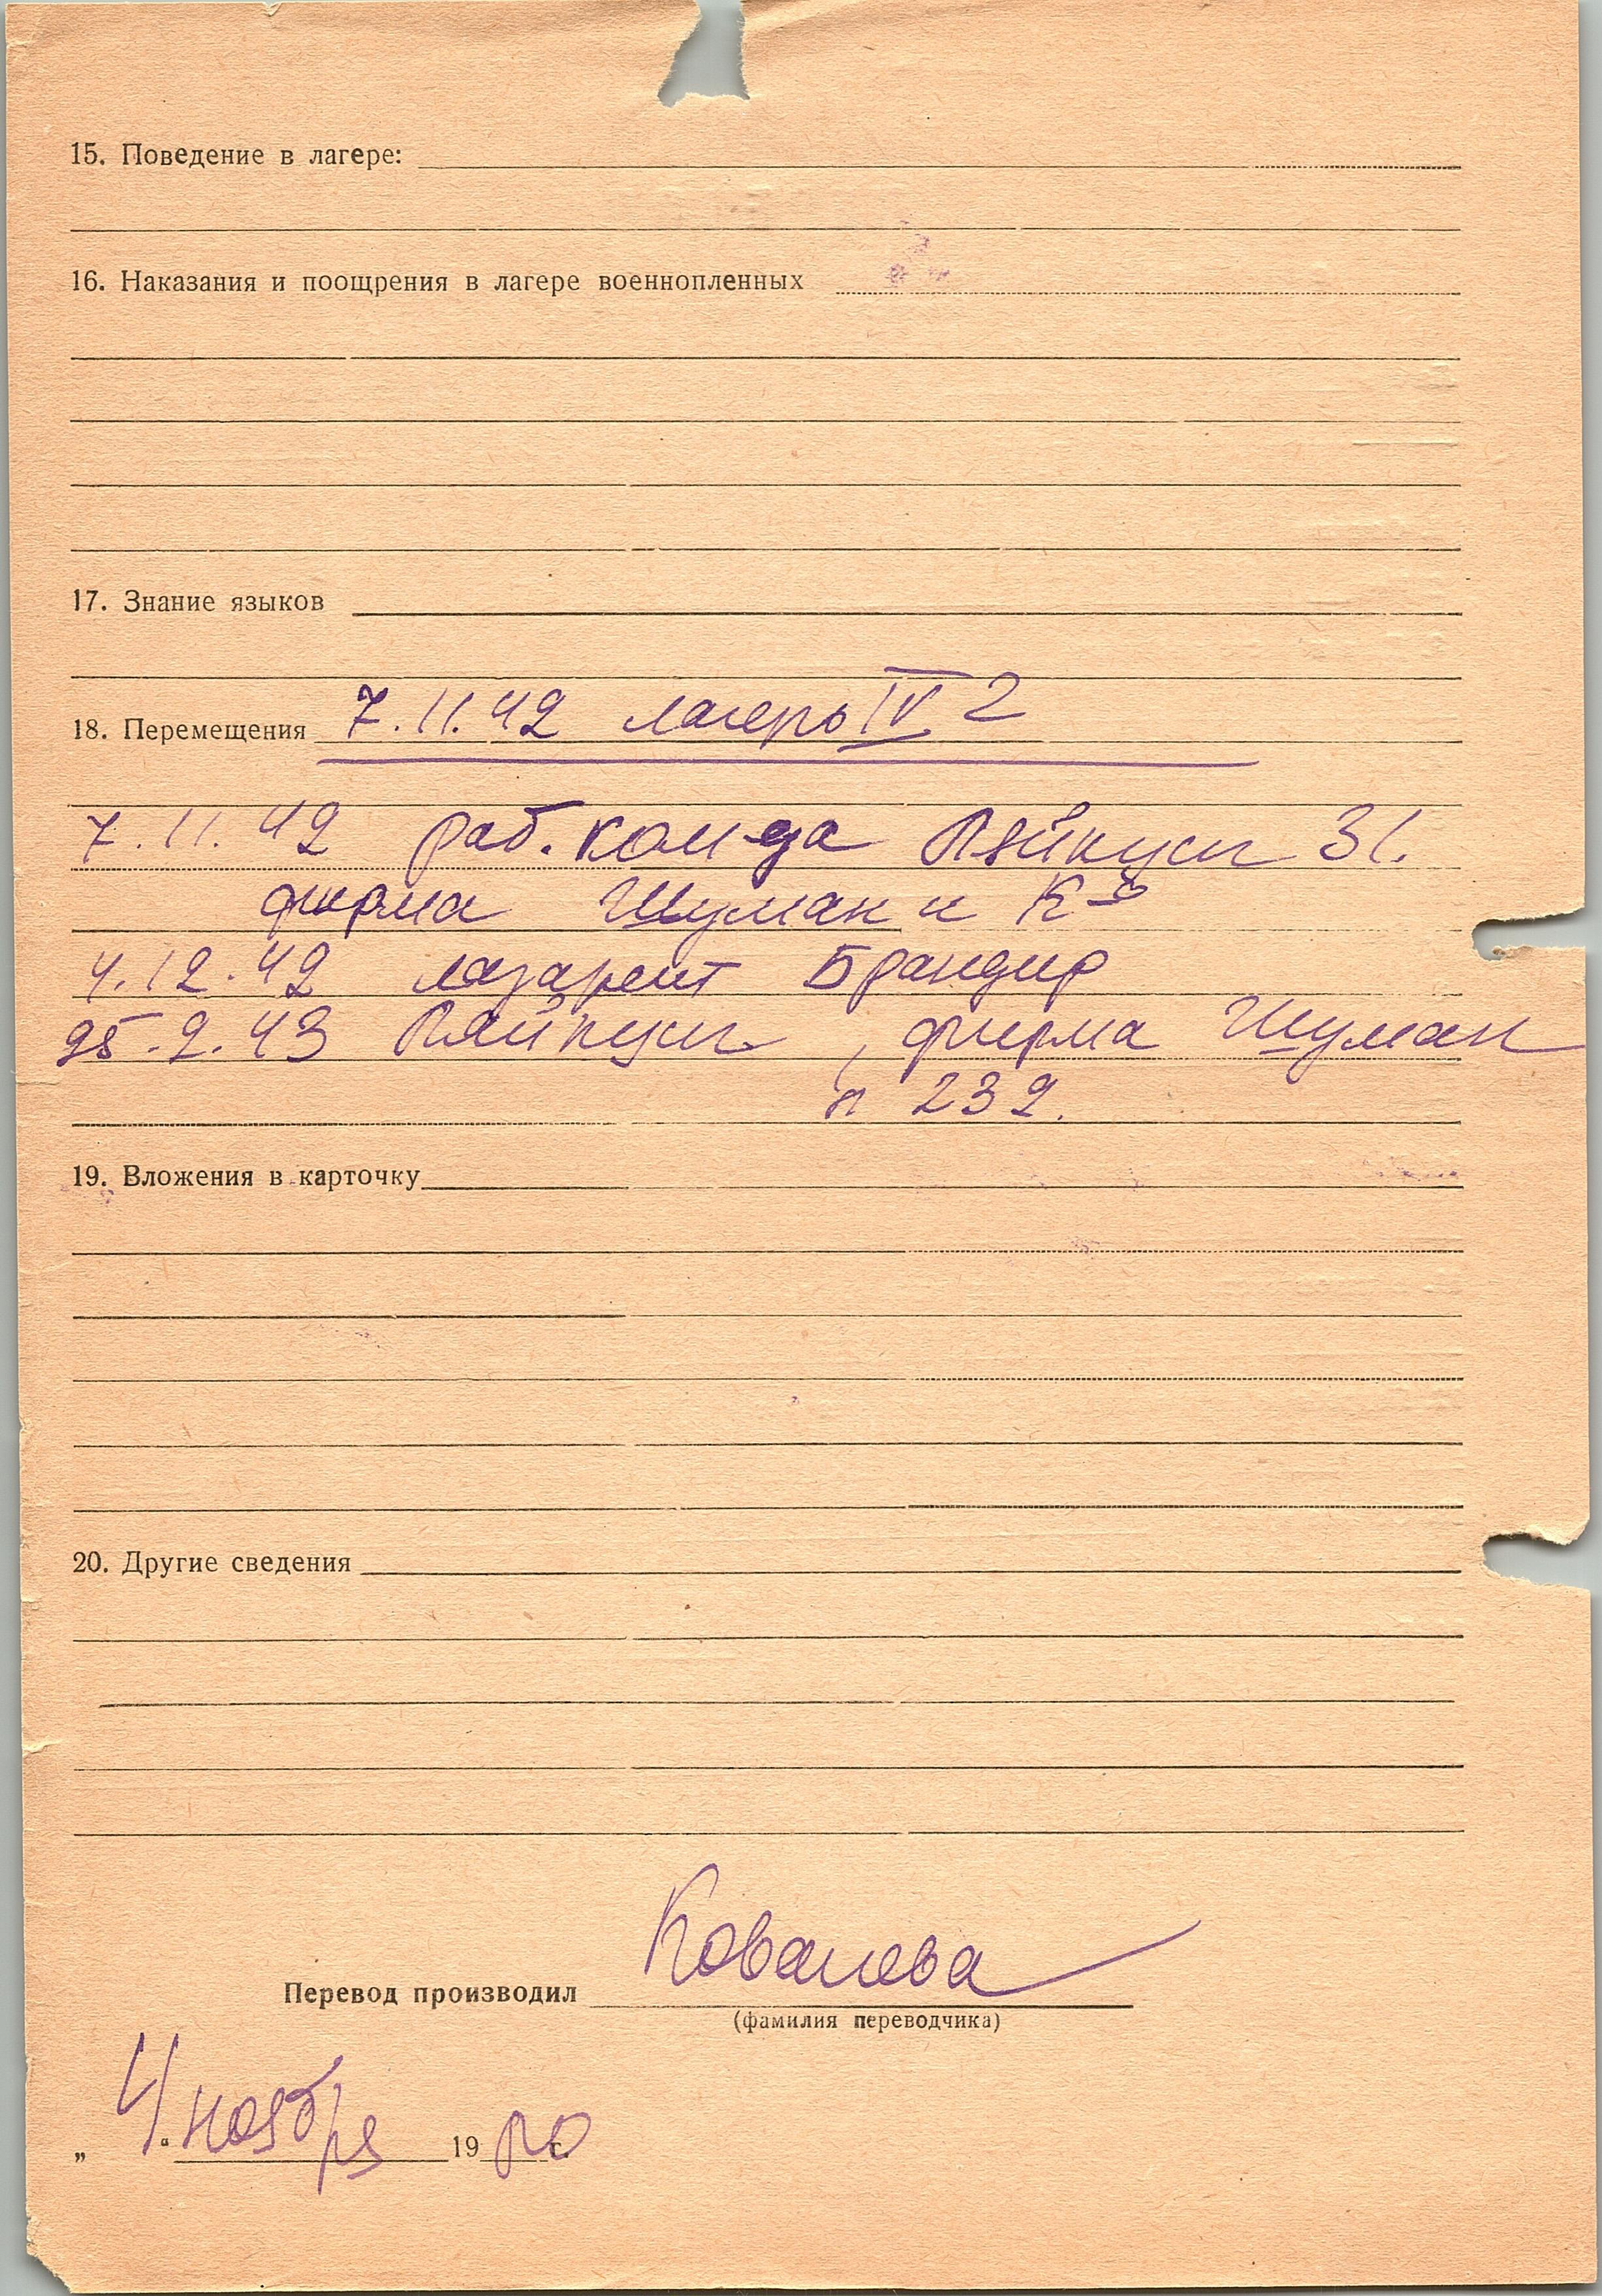 15. Поведение в лагере:
16. Наказания и поощрения в лагере военнопленных
17. Знание языков
18. Перемещения 7.11.42 лагерь IV 2
7.11.42 раб. ком-да 31.
фирма Шуман и К-о
4.12.42 лазарет
25.2.43 , фирма Шуман
п 232.
19. Вложения в карточку
20. Другие сведения
Перевод производил Ковалева
(фамилия переводчика)
„ 4 “ ноября 19 г.